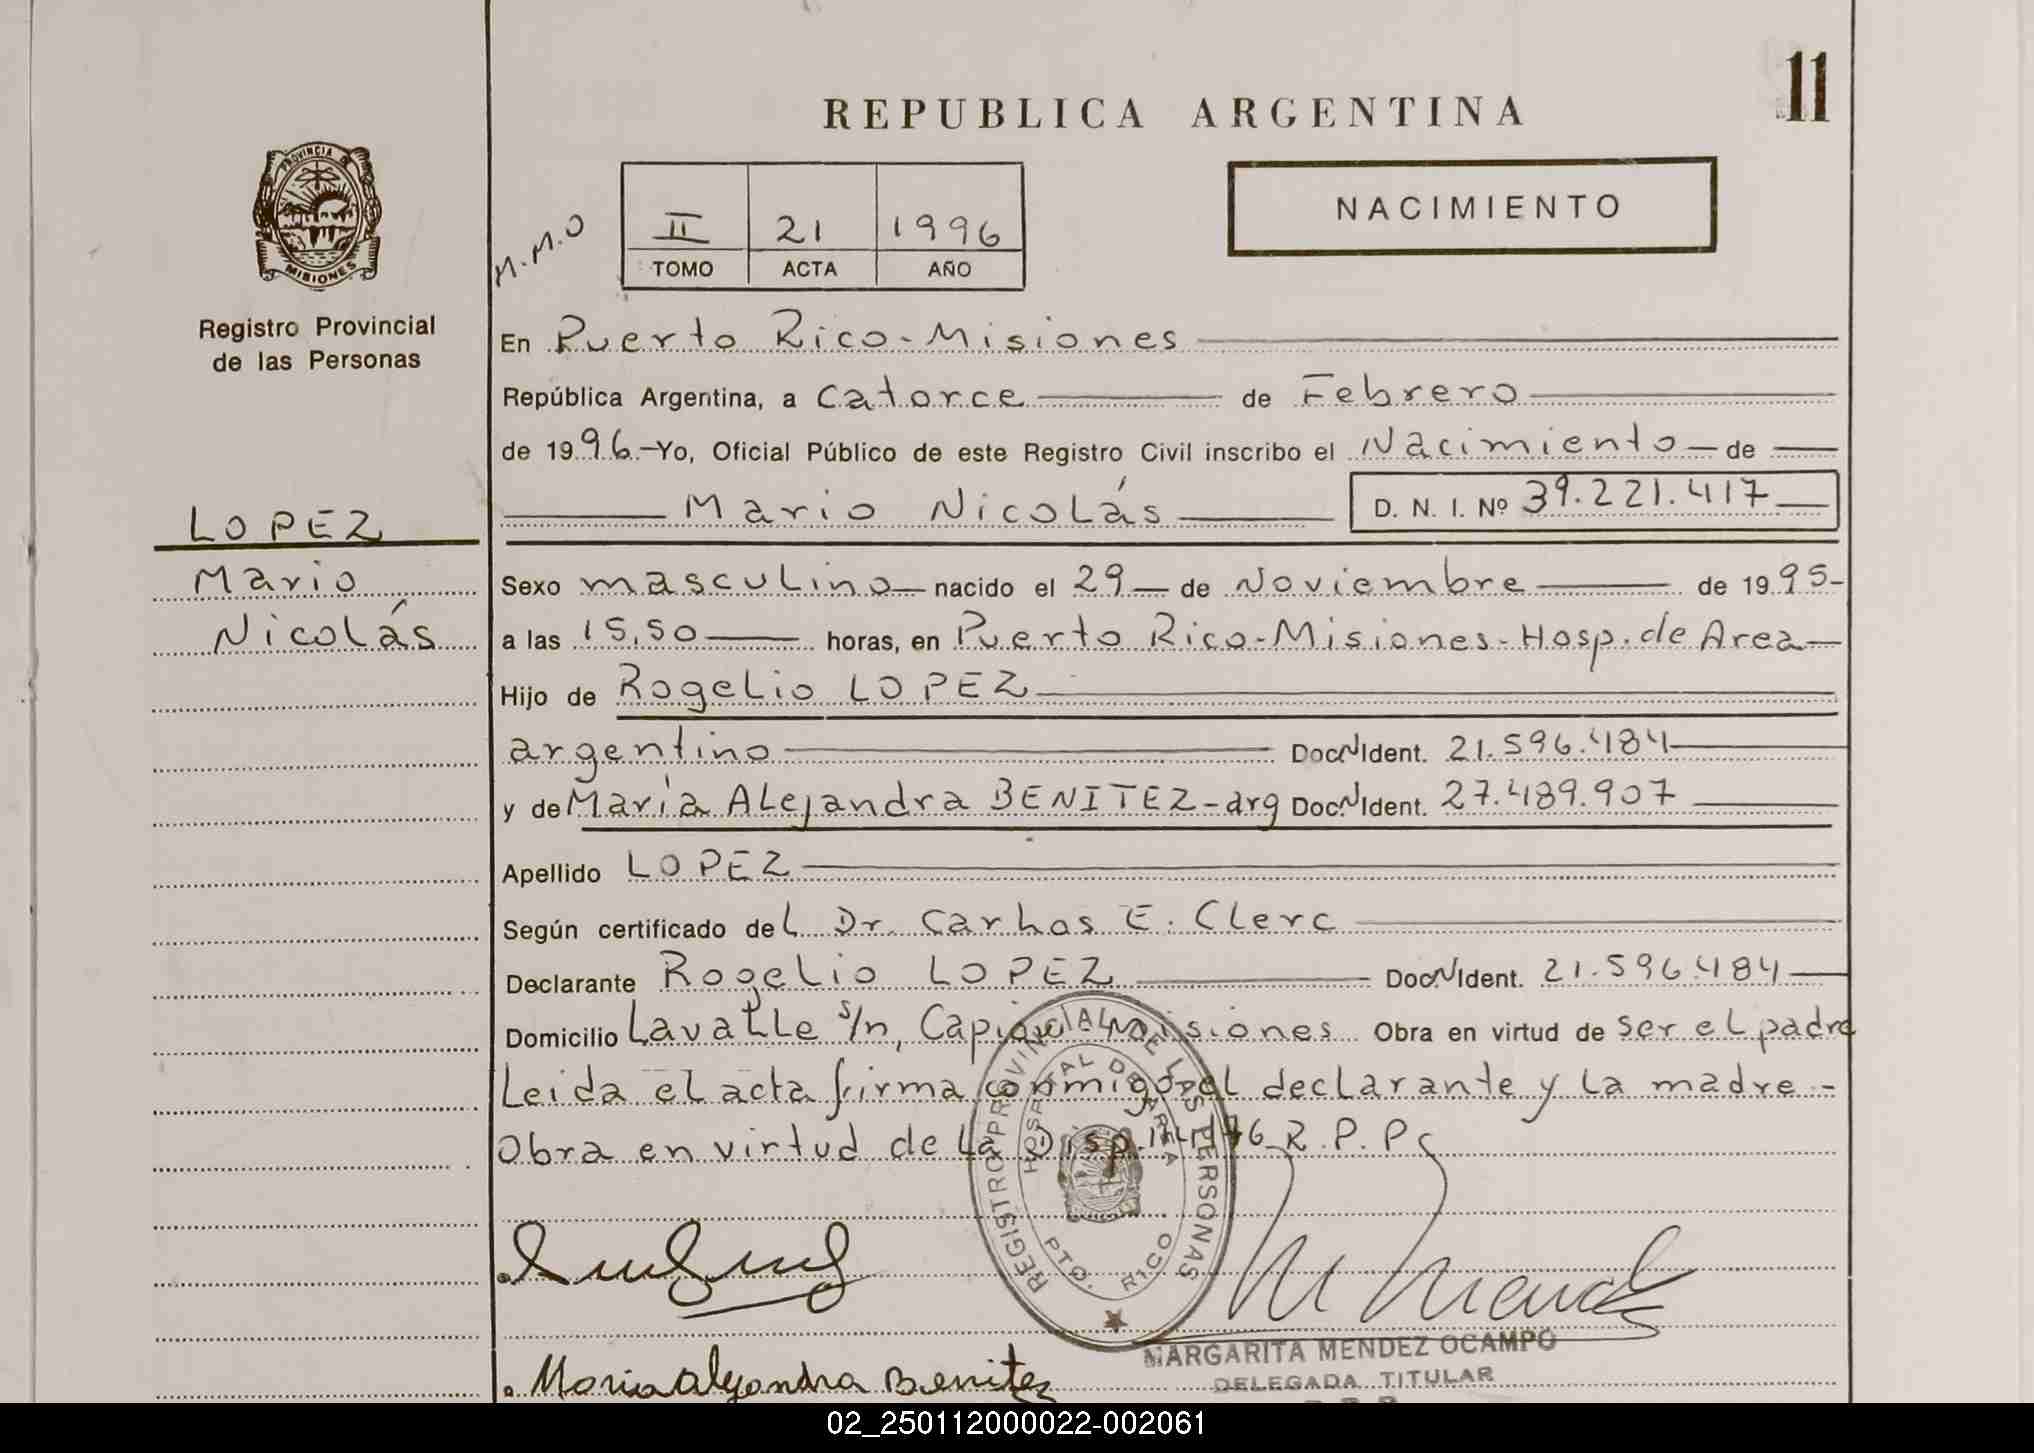 11
REPUBLICA ARGENTINA
PROVINCIA DE
MISIONES
Registro Provincial
de las Personas
M.M.O
II 21 1996
TOMO ACTA AÑO
NACIMIENTO
En Puerto Rico-Misiones
República Argentina, a catorce de Febrero
de 1996-Yo, Oficial Público de este Registro Civil inscribo el Nacimiento de
Mario Nicolás D. N. I. Nº 39.221.417
LOPEZ
Mario
Nicolás
Sexo masculino nacido el 29 de Noviembre de 1995-
a las 15,50 horas, en Puerto Rico-Misiones-Hosp. de Area
Hijo de Rogelio LOPEZ
argentino Doc. N Ident. 21.596.484
y de María Alejandra BENITEZ-arg Doc. N Ident. 27.489.907
Apellido LOPEZ
Según certificado del Dr. Carlos E. Clerc
Declarante Rogelio LOPEZ Doc. N Ident. 21.596.484
Domicilio Lavalle s/n, Misiones Obra en virtud de ser el padre
Leida el acta firma conmigo el declarante y la madre-
Obra en virtud de la Disp. R.P.P.
REGISTRO PROVINCIAL DE LAS PERSONAS
HOSPITAL DE AREA
PTO. RICO
MARGARITA MENDEZ OCAMPO
DELEGADA TITULAR
Maria Alejandra Benitez
02_250112000022-002061